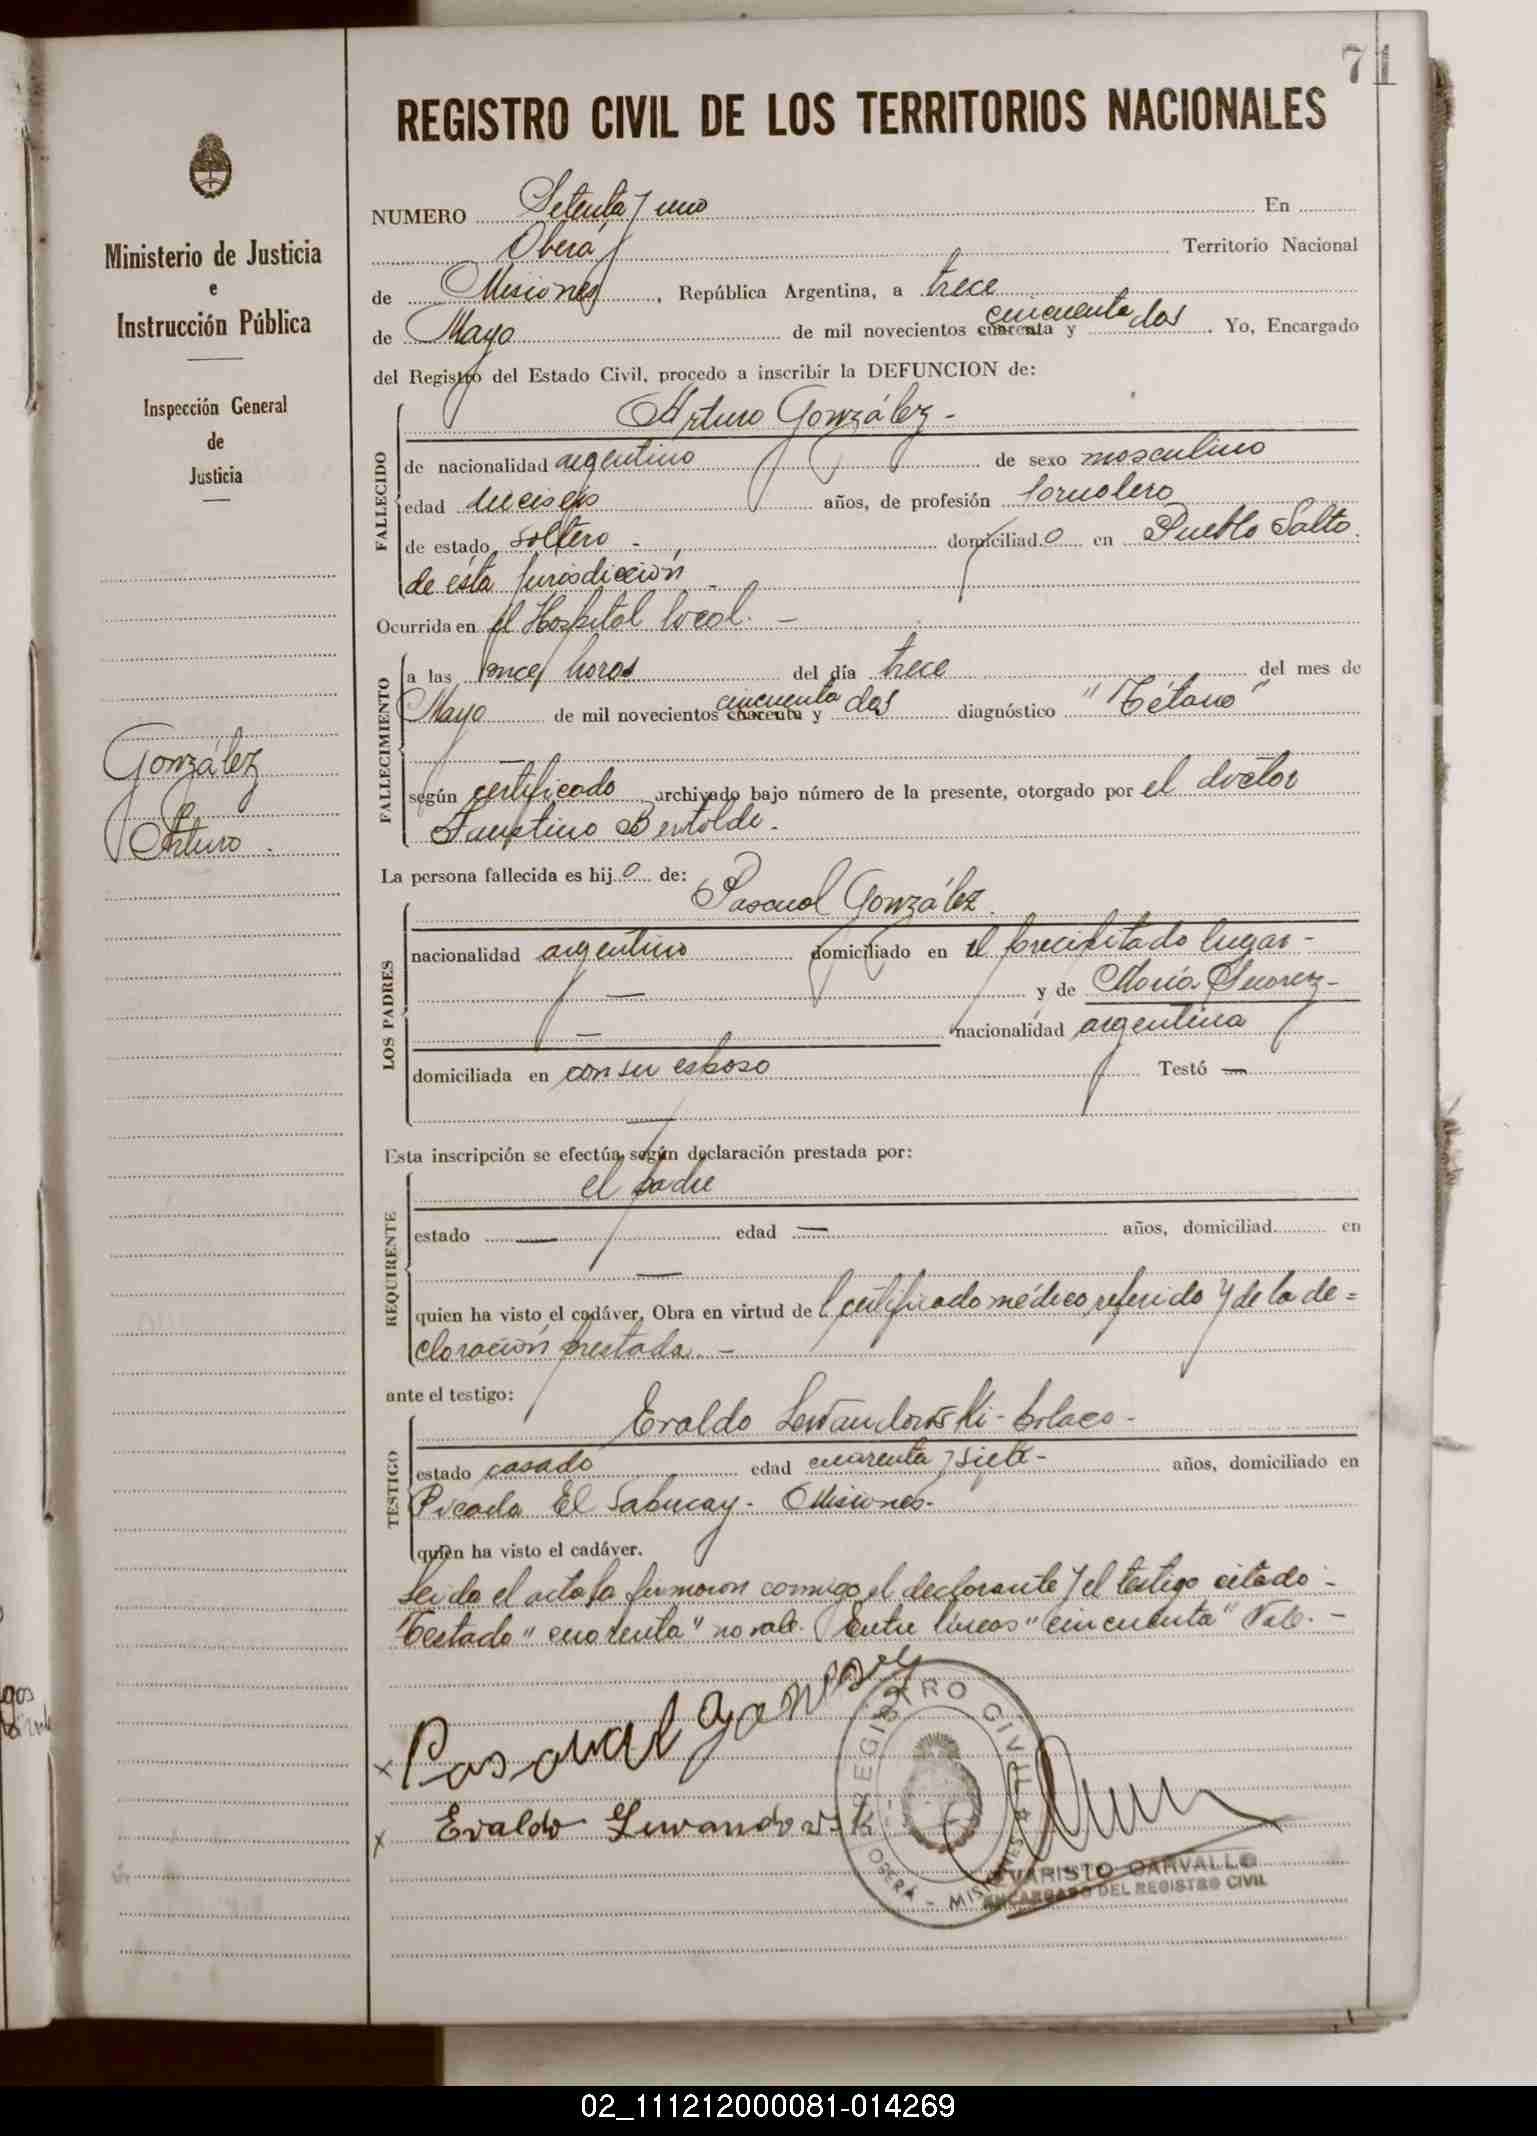 71
REGISTRO CIVIL DE LOS TERRITORIOS NACIONALES
Ministerio de Justicia
e
Instrucción Pública
Inspección General
de
Justicia
González
Arturo.
NUMERO Setenta y uno En
Oberá Territorio Nacional
de Misiones, República Argentina, a trece
cincuenta
de Mayo de mil novecientos cuarenta y dos. Yo, Encargado
del Registro del Estado Civil, procedo a inscribir la DEFUNCION de:
FALLECIDO
Arturo González-
de nacionalidad argentino de sexo masculino
edad dieciseis años, de profesión Jornalero
de estado soltero - domiciliado en Pueblo Salto.
de ésta Jurisdicción -
Ocurrida en el Hospital local. -
FALLECIMIENTO
a las once horas del día trece del mes de
cincuenta
Mayo de mil novecientos cuarenta y dos diagnóstico "Tétano"
según certificado archivado bajo número de la presente, otorgado por el doctor
Faustino Bertoldi.
La persona fallecida es hijo de:
LOS PADRES
Pascual González.
nacionalidad argentino domiciliado en el precipitado lugar-
— y de María Suarez-
— nacionalidad argentina
domiciliada en con su esposo Testó —
—
Esta inscripción se efectúa según declaración prestada por:
REQUIRENTE
el padre
estado — edad — años, domiciliad en
—
quien ha visto el cadáver, Obra en virtud del certificado médico referido y de la de=
claración prestada. -
ante el testigo:
TESTIGO
Evaldo Lewandowski - polaco-
estado casado edad cuarenta y siete- años, domiciliado en
Picada El Sabucay- Misiones-
quien ha visto el cadáver.
Leída el acta la firmaron conmigo, el declarante y el testigo citado-
Testado "cuarenta" no vale. Entre líneas "cincuenta" Vale. -
x Pascual gonzalez
x Evaldo Lewandowski
REGISTRO CIVIL
OBERÁ - MISIONES
EVARISTO CARVALLO
ENCARGADO DEL REGISTRO CIVIL
02_111212000081-014269